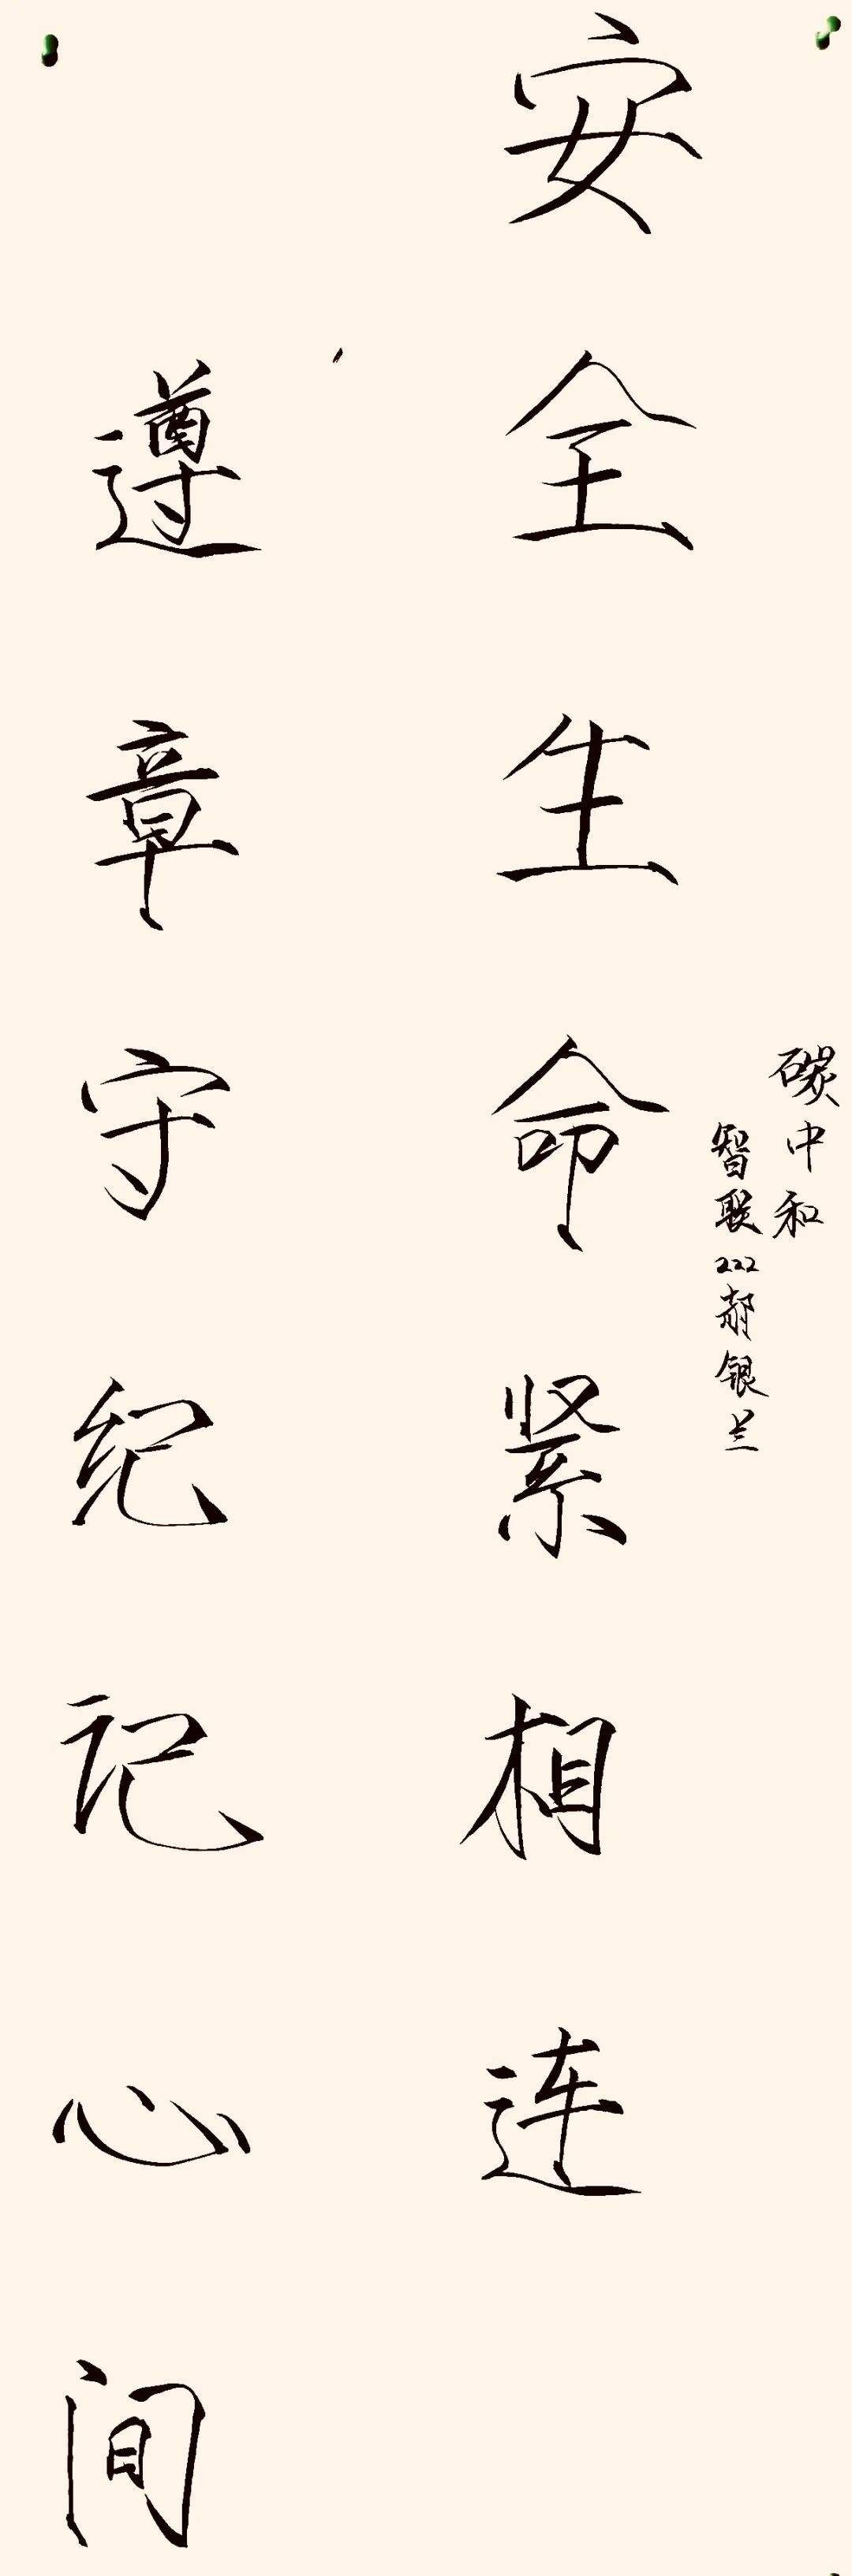 安全生命紧相连
遵章守纪记心间
碳中和
智联222郝银兰